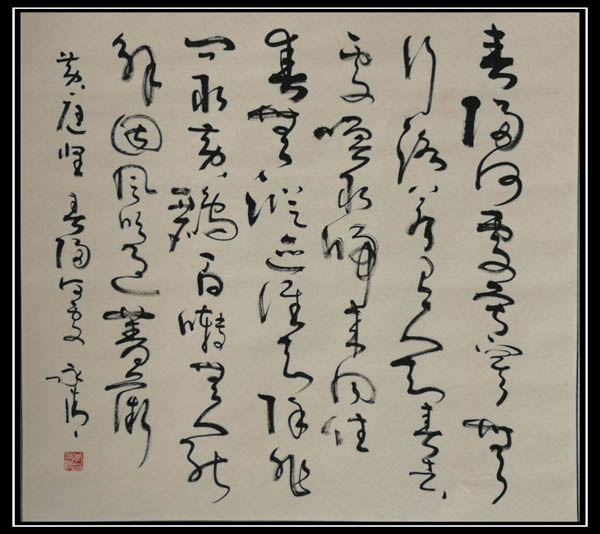 春歸何處寂寞無
行路若有人知春去
處喚取歸來同住
春無蹤迹誰知除非
問取黄鸝百囀無人能
解因風吹過薔薇
黄庭堅 春歸何處